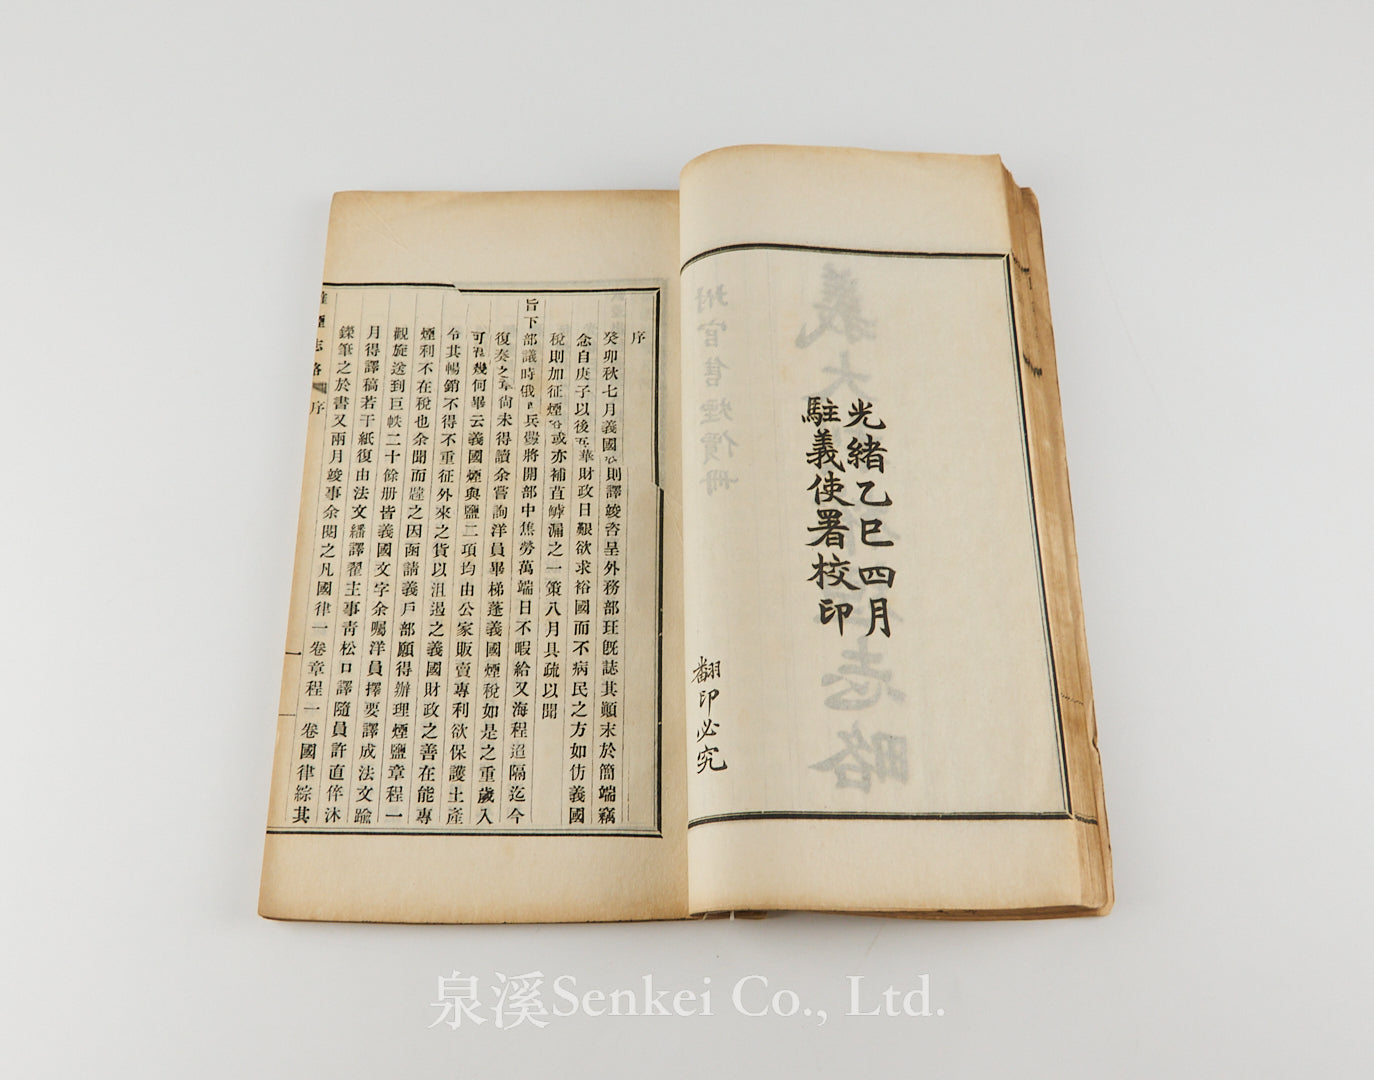 光緒乙巳四月
駐義使署校印
翻印必究
序
癸卯秋七月義國則譯竣咨呈外務部玨旣誌其顛末於簡端竊
念自庚子以後華財政日艱欲求裕國而不病民之方如仿義國
稅則加征煙或亦補苴罅漏之一策八月具疏以聞
旨下部議時俄兵釁將開部中焦勞萬端日不暇給又海程迢隔迄今
復奏之章尚未得讀余嘗詢洋員畢梯蓬義國煙稅如是之重歲入
可得幾何畢云義國煙與鹽二項均由公家販賣專利欲保護土產
令其暢銷不得不重征外來之貨以沮遏之義國財政之善在能專
煙利不在稅也余聞而韙之因函請義戶部願得辦理煙鹽章程一
觀旋送到巨帙二十餘册皆義國文字余囑洋員擇要譯成法文踰
月得譯稿若干紙復由法文繙譯翟主事靑松口譯隨員許直倅沐
鑅筆之於書又兩月竣事余閱之凡國律一卷章程一卷國律綜其
煙志略 序 一
泉溪Senkei Co., Ltd.